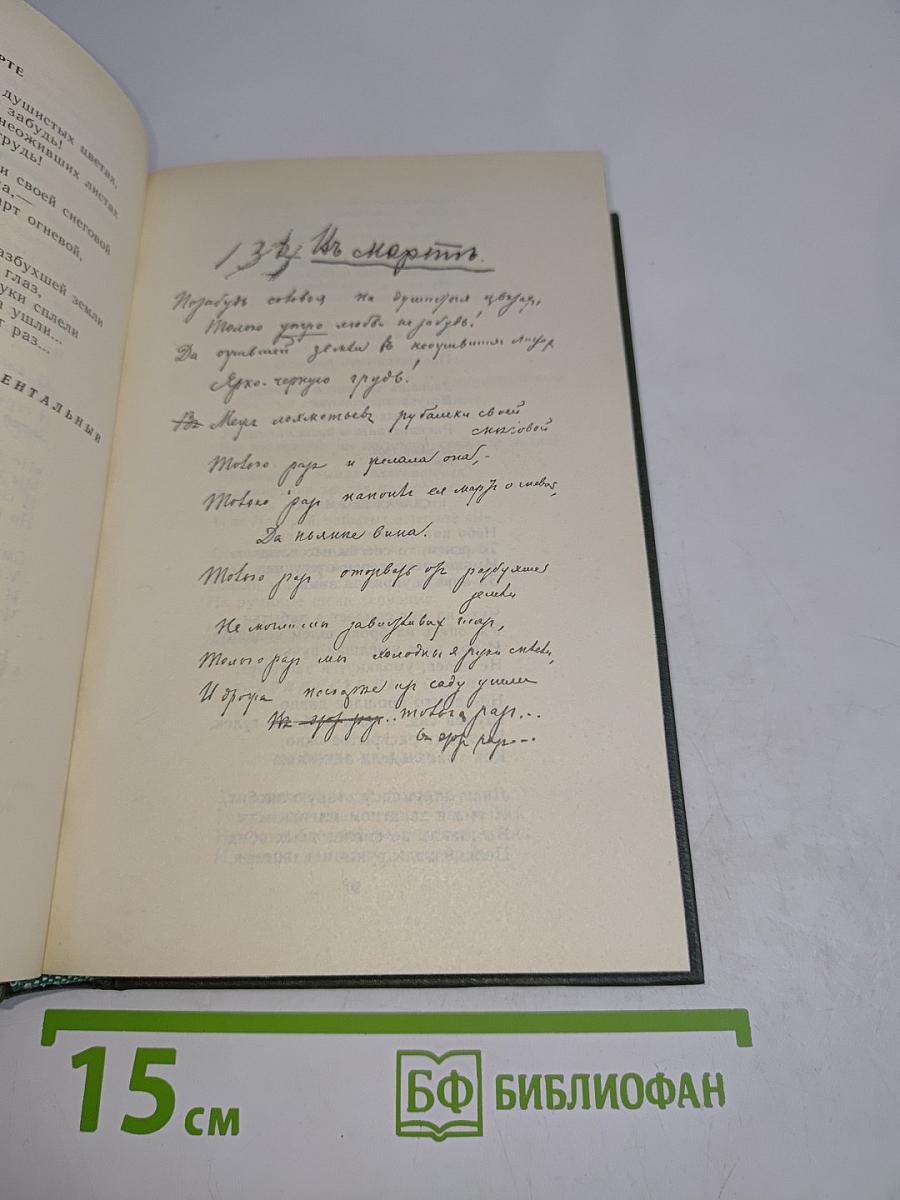 РТЕ
душистых цветах,
забудь!
неоживших листах
грудь!
и своей снеговой
а,—
арт огневой,
азбухшей земли
глаз,
уки сплели
ушли...
т раз...
ЕНТАЛЬНЫЙ
13 Въ мартѣ.
Позабудь соловья на душистыхъ цвѣтах,
Только утро любви не забудь!
Да ожившей земли в неоживших листах
Ярко-черную грудь!
Межъ лохмотьевъ рубашки своей
снѣговой
Только раз и желала она,-
Только раз напоилъ ее мартъ огневой,
Да пьянѣе вина.
Только раз оторвать от разбухшей
земли
Не могли мы завистливых глаз,
Только раз мы холодныя руки сплели,
И дрожа поскорѣе из саду ушли
Въ этот раз.. только раз...
въ этот раз...
15 см
БФ БИБЛИОФАН